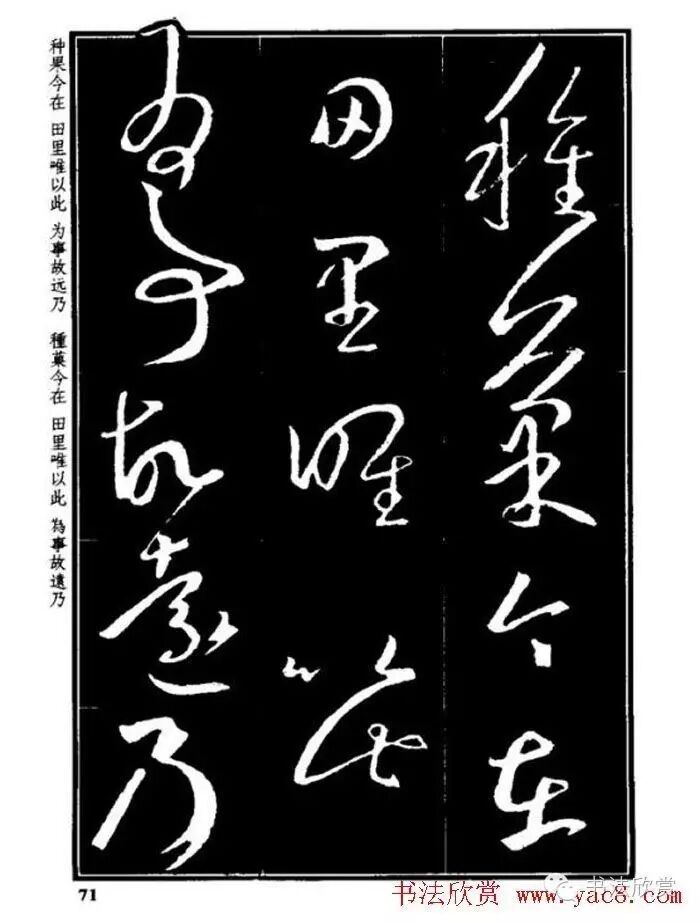 種菓今在
田里唯以此
為事故遠乃
种果今在 田里唯以此 为事故远乃 種菓今在 田里唯以此 為事故遠乃
71
书法欣赏 www.yac8.com
书法欣赏